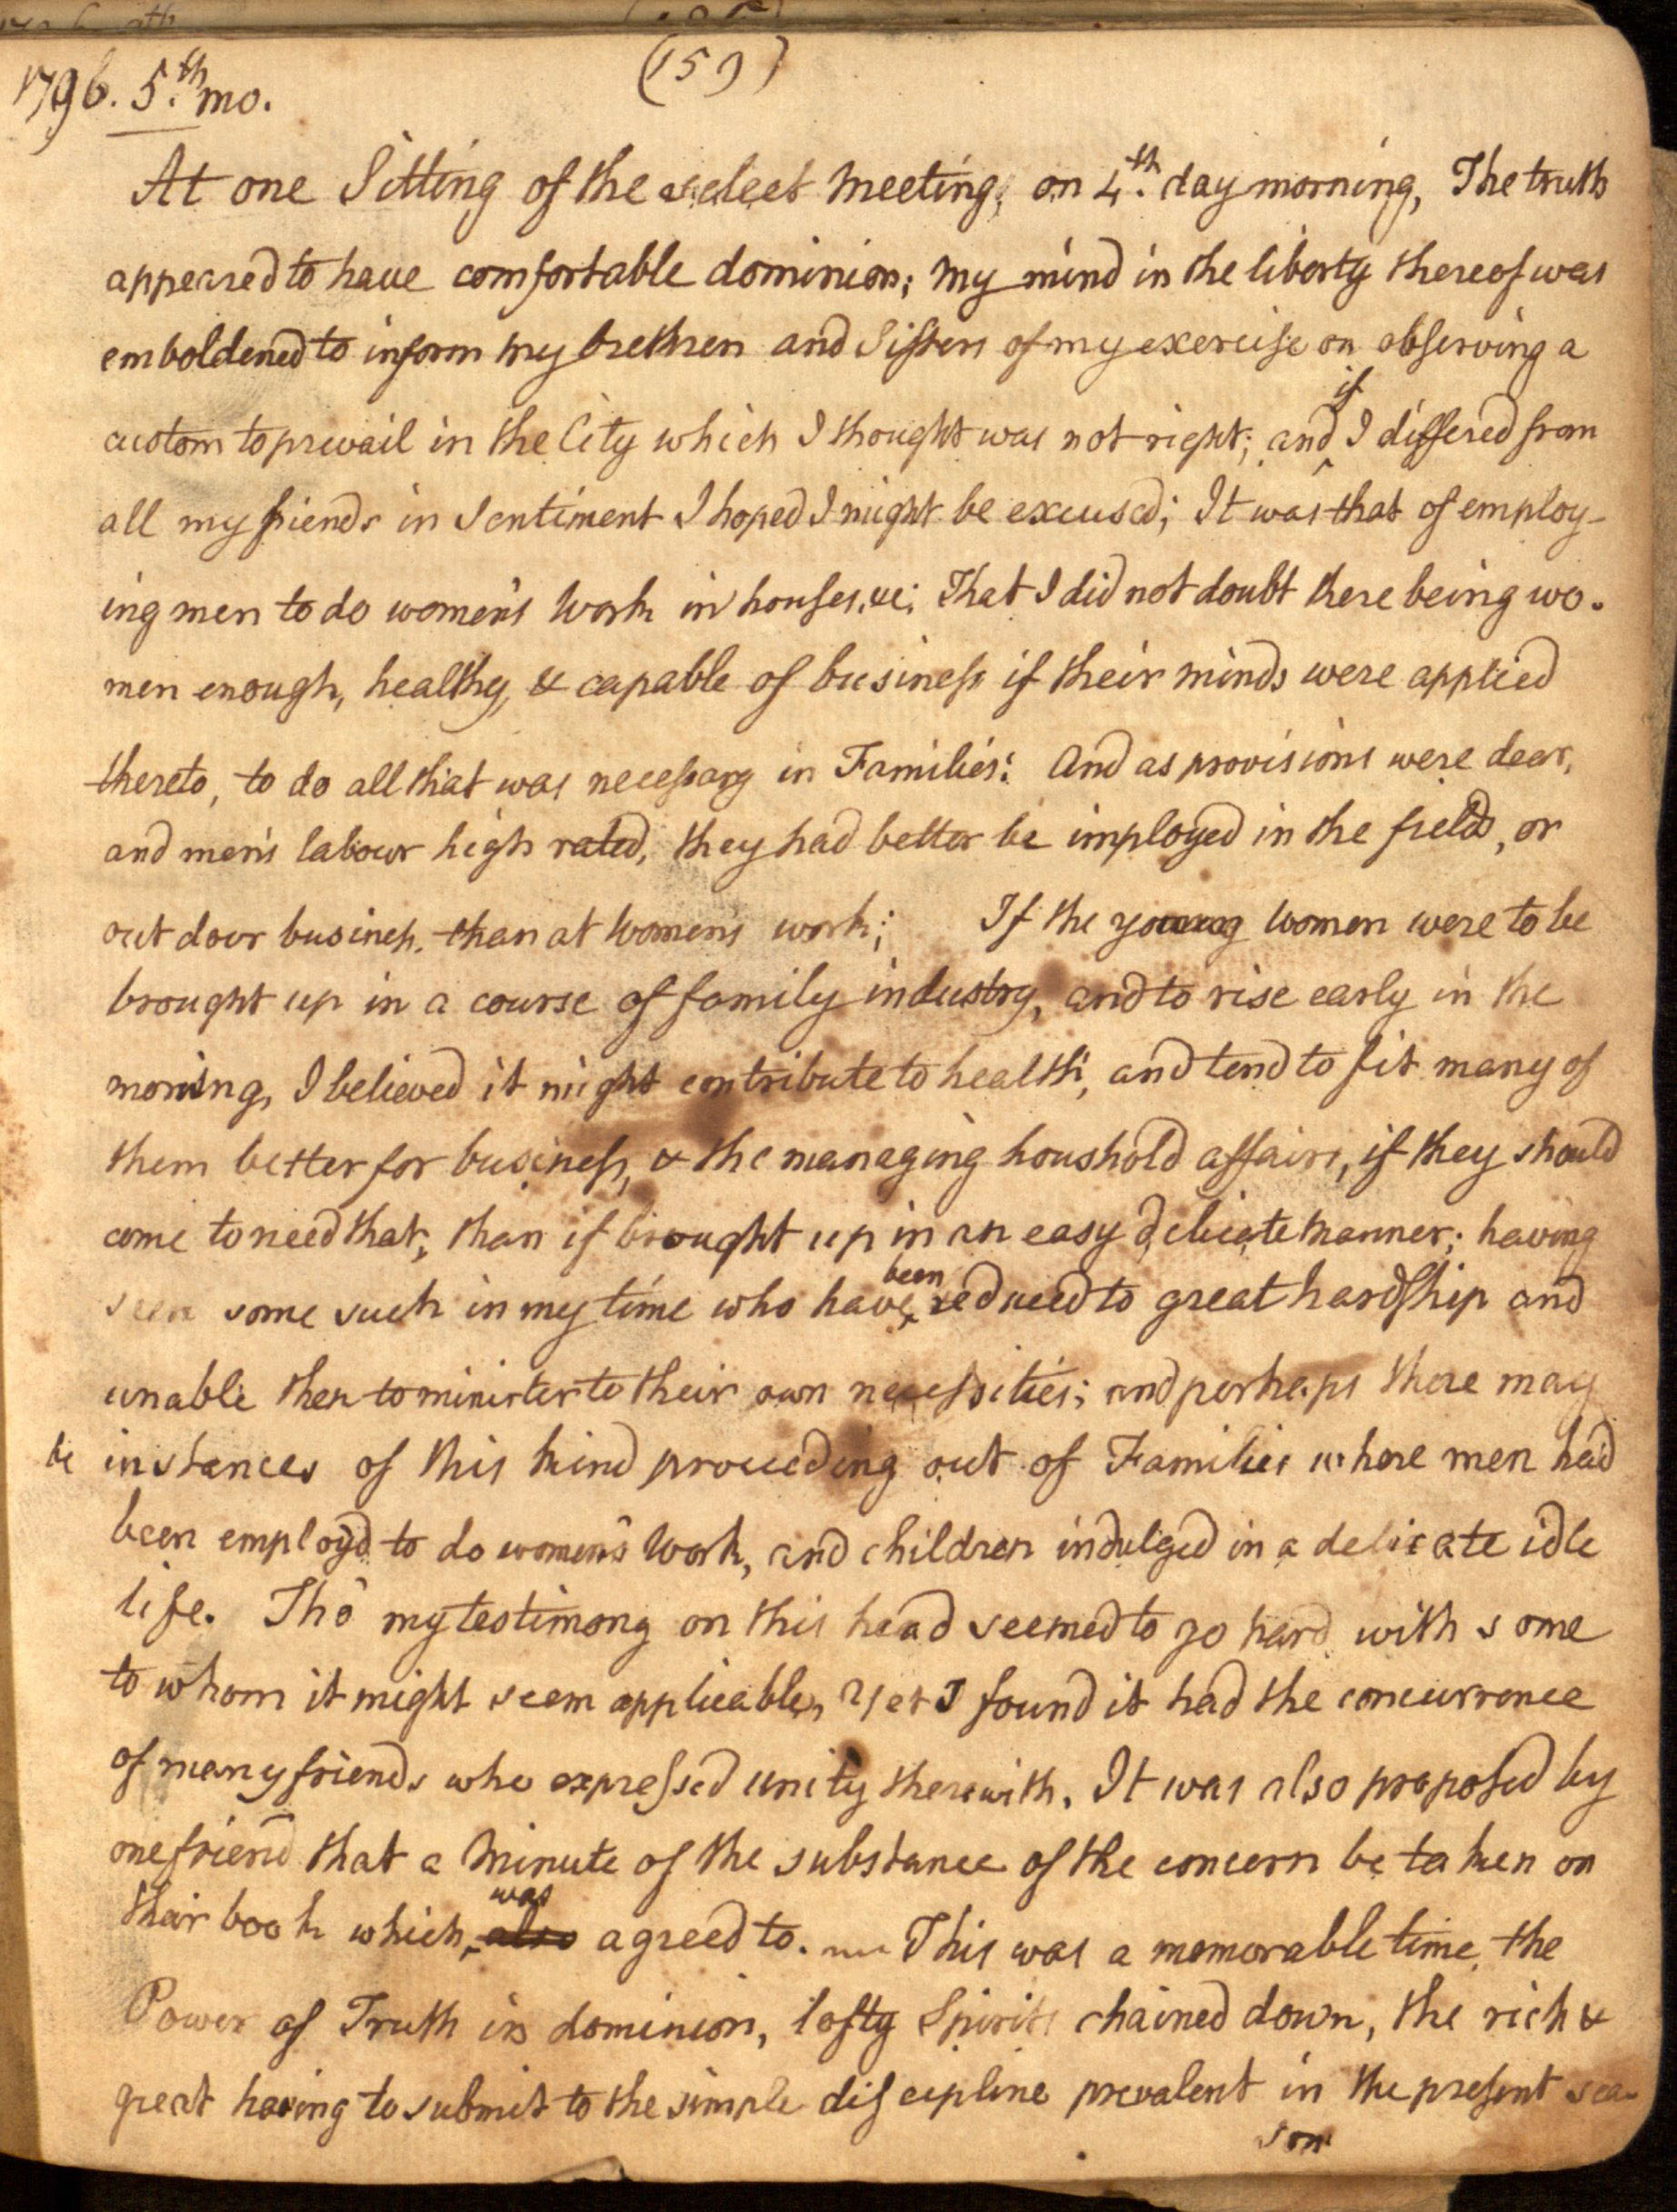 (159)
1796. 5.th mo.
At one Sitting of the select Meeting, on 4.th day morning, The truth
appeared to have comfortable dominion; My mind in the liberty thereof was
emboldened to inform my brethren and Sisters of my exercise on observing a
custom to prevail in the City which I thought was not right; and if I differed from
all my friends in Sentiment I hoped I might be excused; It was that of employ-
ing men to do women's Work in houses, &c; That I did not doubt there being wo-
men enough, healthy, & capable of business if their minds were applied
thereto, to do all that was necessary in Families: And as provisions were dear,
and men's labour high rated, they had better be imployed in the field, or
out door business. than at Women's work; If the young Women were to be
brought up in a course of family industry, and to rise early in the
morning, I believed it might contribute to health, and tend to fit many of
them better for business, & the managing houshold affairs, if they should
come to need that, than if brought up in an easy delicate manner; having
seen some such in my time who have been reduced to great hardship and
unable then to minister to their own necessities; and perhaps there may
be instances of this kind proceeding out of Families where men had
been employ'd to do women's Work, and children indulged in a delicate idle
life. Tho' my testimony on this head seemed to go hard with some
to whom it might seem applicable, Yet I found it had the concurrence
of many friends who expressed unity therewith. It was also proposed by
one friend that a Minute of the substance of the concern be taken on
their book which was also agreed to. — This was a memorable time, the
Power of Truth in dominion, lofty Spirits chained down, the rich &
great having to submit to the simple discipline prevalent in the present sea-
son